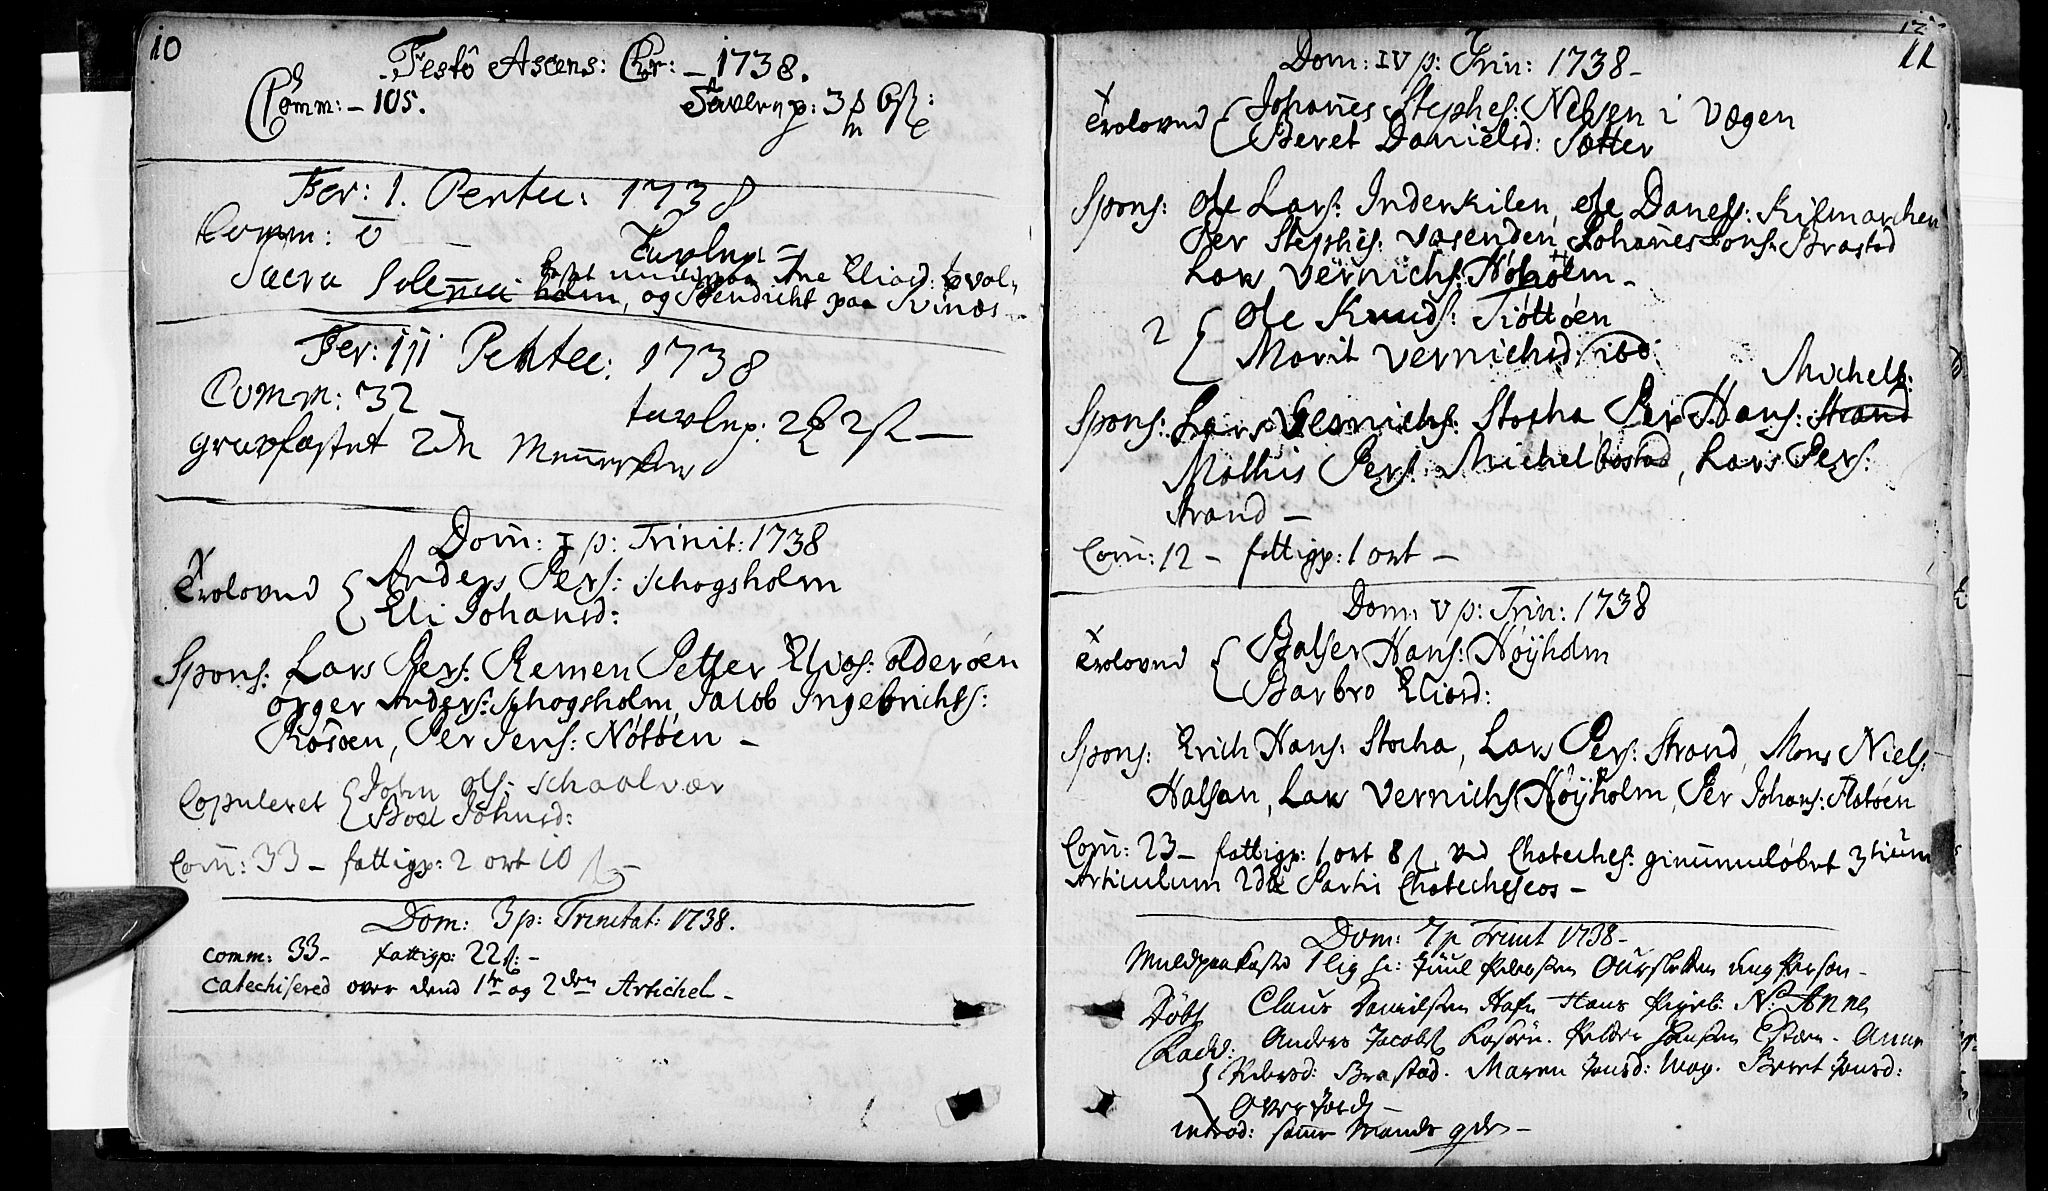 10
Festô Ascens: Chr: – 1738.
Comm: – 105. Tavlenp: 3 6
Fer: 1. Pentec: 1738
Comm: 0 – Tavlnp: =
Sacra Solennia Ane Eliasd:
holm, og Bendicht paa Svinæs
Fer: iii Pentec: 1738
Comm: 32 –
tavlnp: 2 2 –
gravfæstet 2de Mennesker
Dom̄: I p: Trinit: 1738
Trolovud Anders Pers: Schogsholm
Eli Johansd:
Spons: Lars Pers: Remen Petter Elias: Olderöen
Anders: Schogsholm, Jacob Ingebrichts:
Rösöen, Per Jens: Nötöen –
Copuleret John Ols: Schaalvær
Boel Johnsd:
Com̄: 33 – fattigp: 2 ort 10 ß –
Dom: 3 p: Trinitat: 1738.
comm: 33 – fattigp: 22 ß: –
catechisered over dend 1te og 2den Artichel –
11
Dom: IV p: Trin: 1738 –
Trolovud Johan̄es Stephes: Nelsen i Vægen
Beret Danielsd: Sætter
Spons: Ole Lars: Inderkilen, Ole Danels: Kilmarchen
Per Stephes: Vasenden Johan̄es Jons: Brastad
Lars Vernichs: Höholm –
2 Ole Knuds: Tiöttöen
Marit Vernichsd: ibd.
Michels:
Spons: Lars Vernichs: Stocha Per Hans: Strand
Mathis Pers: Michelbostad, Lars Pers:
Strand –
Com̄: 12 – fattigp: 1 ort –
Dom: V p: Trin: 1738
Trolovud Balser Hans: Høÿholm
Barbro Eliasd:
Spons: Erich Hans: Stocha, Lars Pers: Strand, Mons Niels:
Halsan, Lars Vernichs: Høÿholm, Per Johans: Flatöen
Com̄: 23 – fattigp: 1 ort 8 ß, ved Chateches: gin̄emløbet 3tium
Articulum 2dæ Partis Chatecheseos –
Dom: 7 p Trinit 1738 –
Muldpaakast 1 lig Juul Person –
Döbt Claus Danielsen Hafn Hans N: Anne
Fadd: Anders Jacobs Rosöen. Petter Hansen – Anne
Pedersd: Brastad. Maren Jonsd: Wæg. Beret Jonsd:
–
introd: samme –